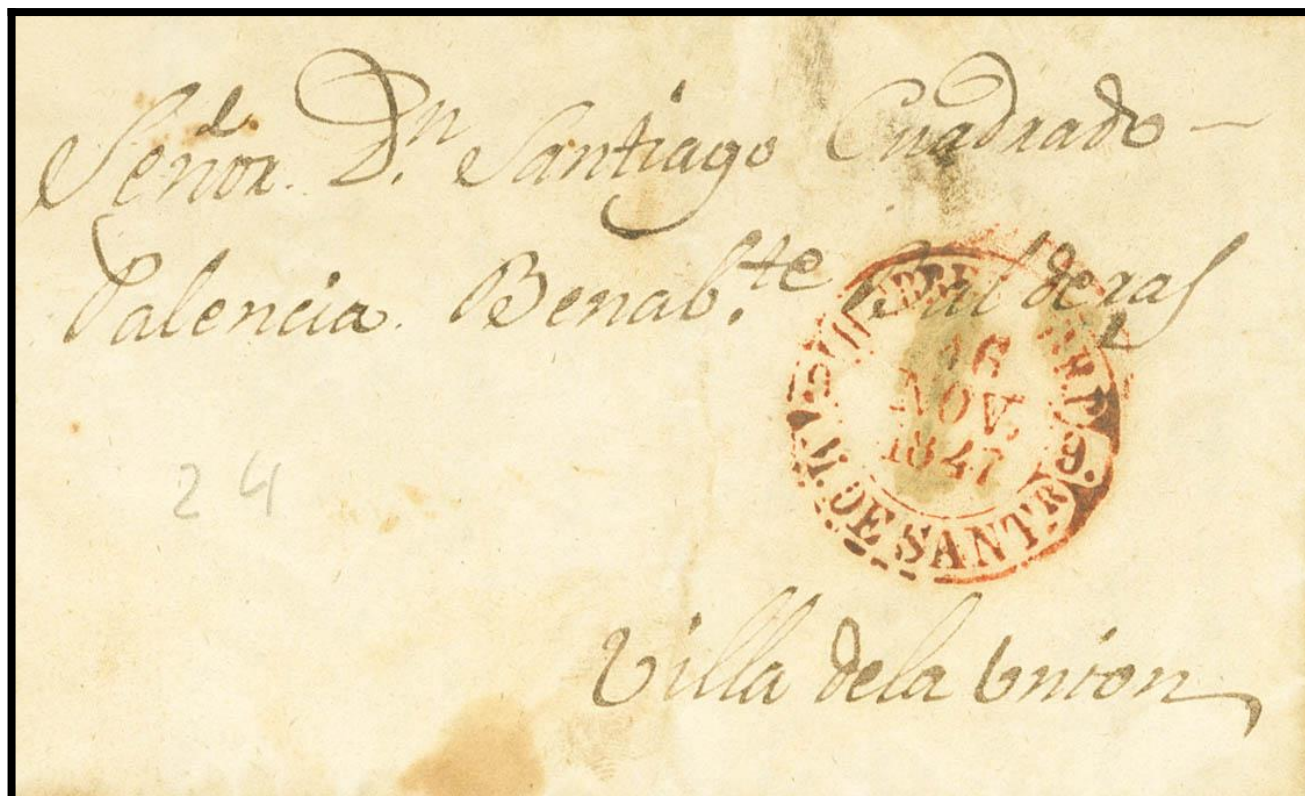 Señor. Dn. Santiago Cuadrado —
Palencia. Benab.te Valderas
16
NOV.
1847
M. DE SANTR 9.
24
Villa dela Union